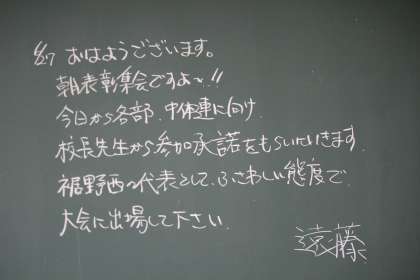 6/7 おはようございます。
朝表彰集会ですよ〜!!
今日から各部、中体連に向け
校長先生から参加承諾をもらいにいきます。
裾野西の代表として、ふさわしい態度で
大会に出場して下さい。
遠藤